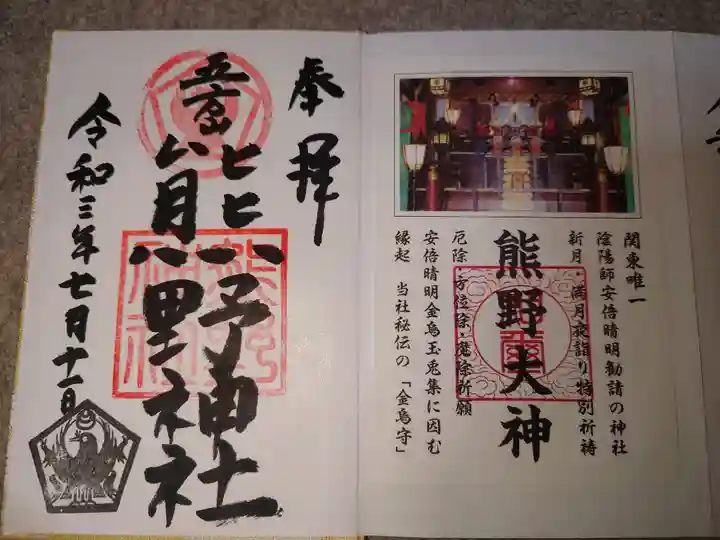 奉拝
五方山
熊野神社
令和三年七月十一日
関東唯一
陰陽師安倍晴明勧請の神社
新月・満月夜詣り特別祈祷
熊野大神
厄除・方位除・魔除祈願
安倍晴明金烏玉兎集に因む
縁起 当社秘伝の「金烏守」